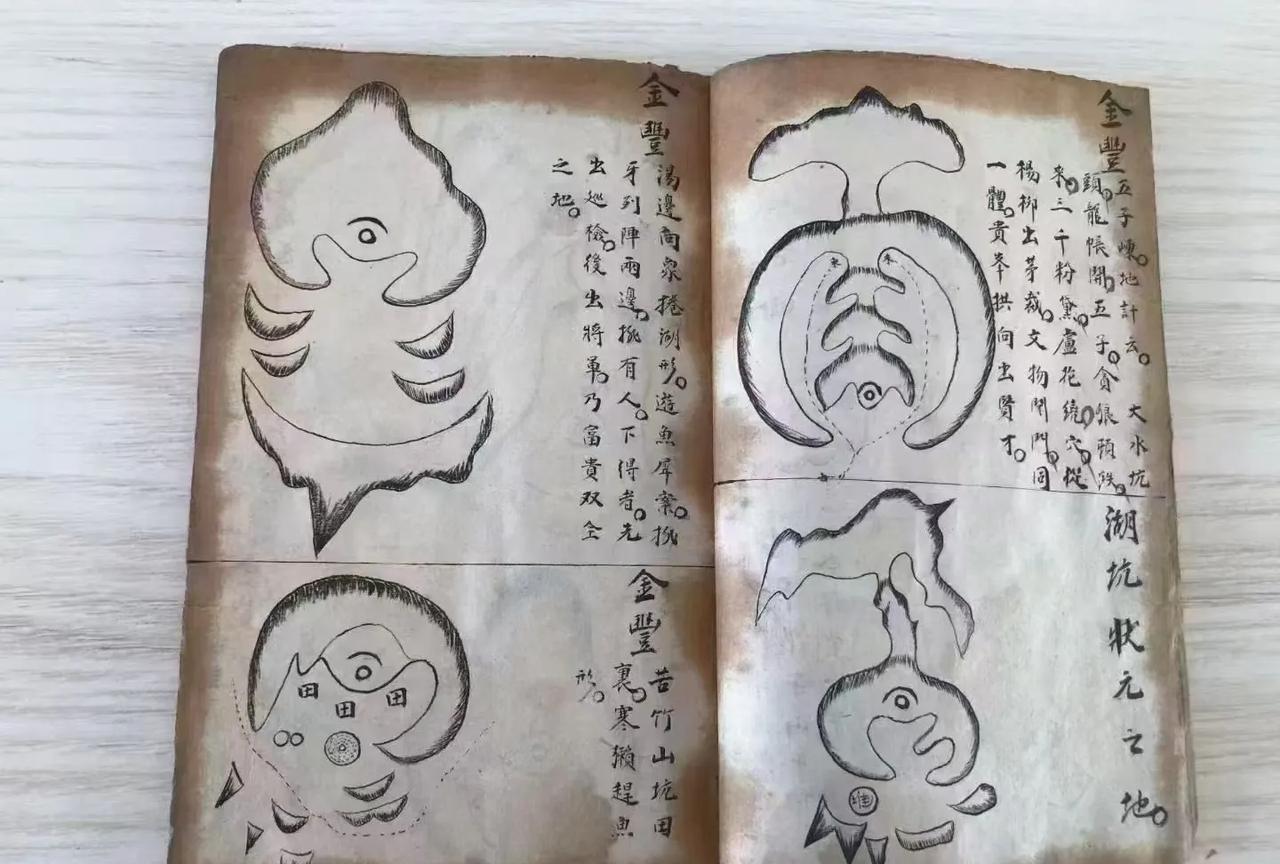 金豐
五子崠。地計云。大水坑
頭。龍帳開。五子。貪狼頭跌。
來。三千粉黛。盧花繞穴。從
楊柳出芽裁。文物鬥鬥。同
一體。貴峯拱向出賢才。
湖坑狀元之地。
金豐
湯邊向泉捲湖形。遊魚犀案。挑
牙到陣兩邊。挑有人。下得者。先
出巡檢。後出將軍。乃富貴双全
之地。
金豐
苦竹山坑田
裏。寒獺趕魚
形。
田
田
田